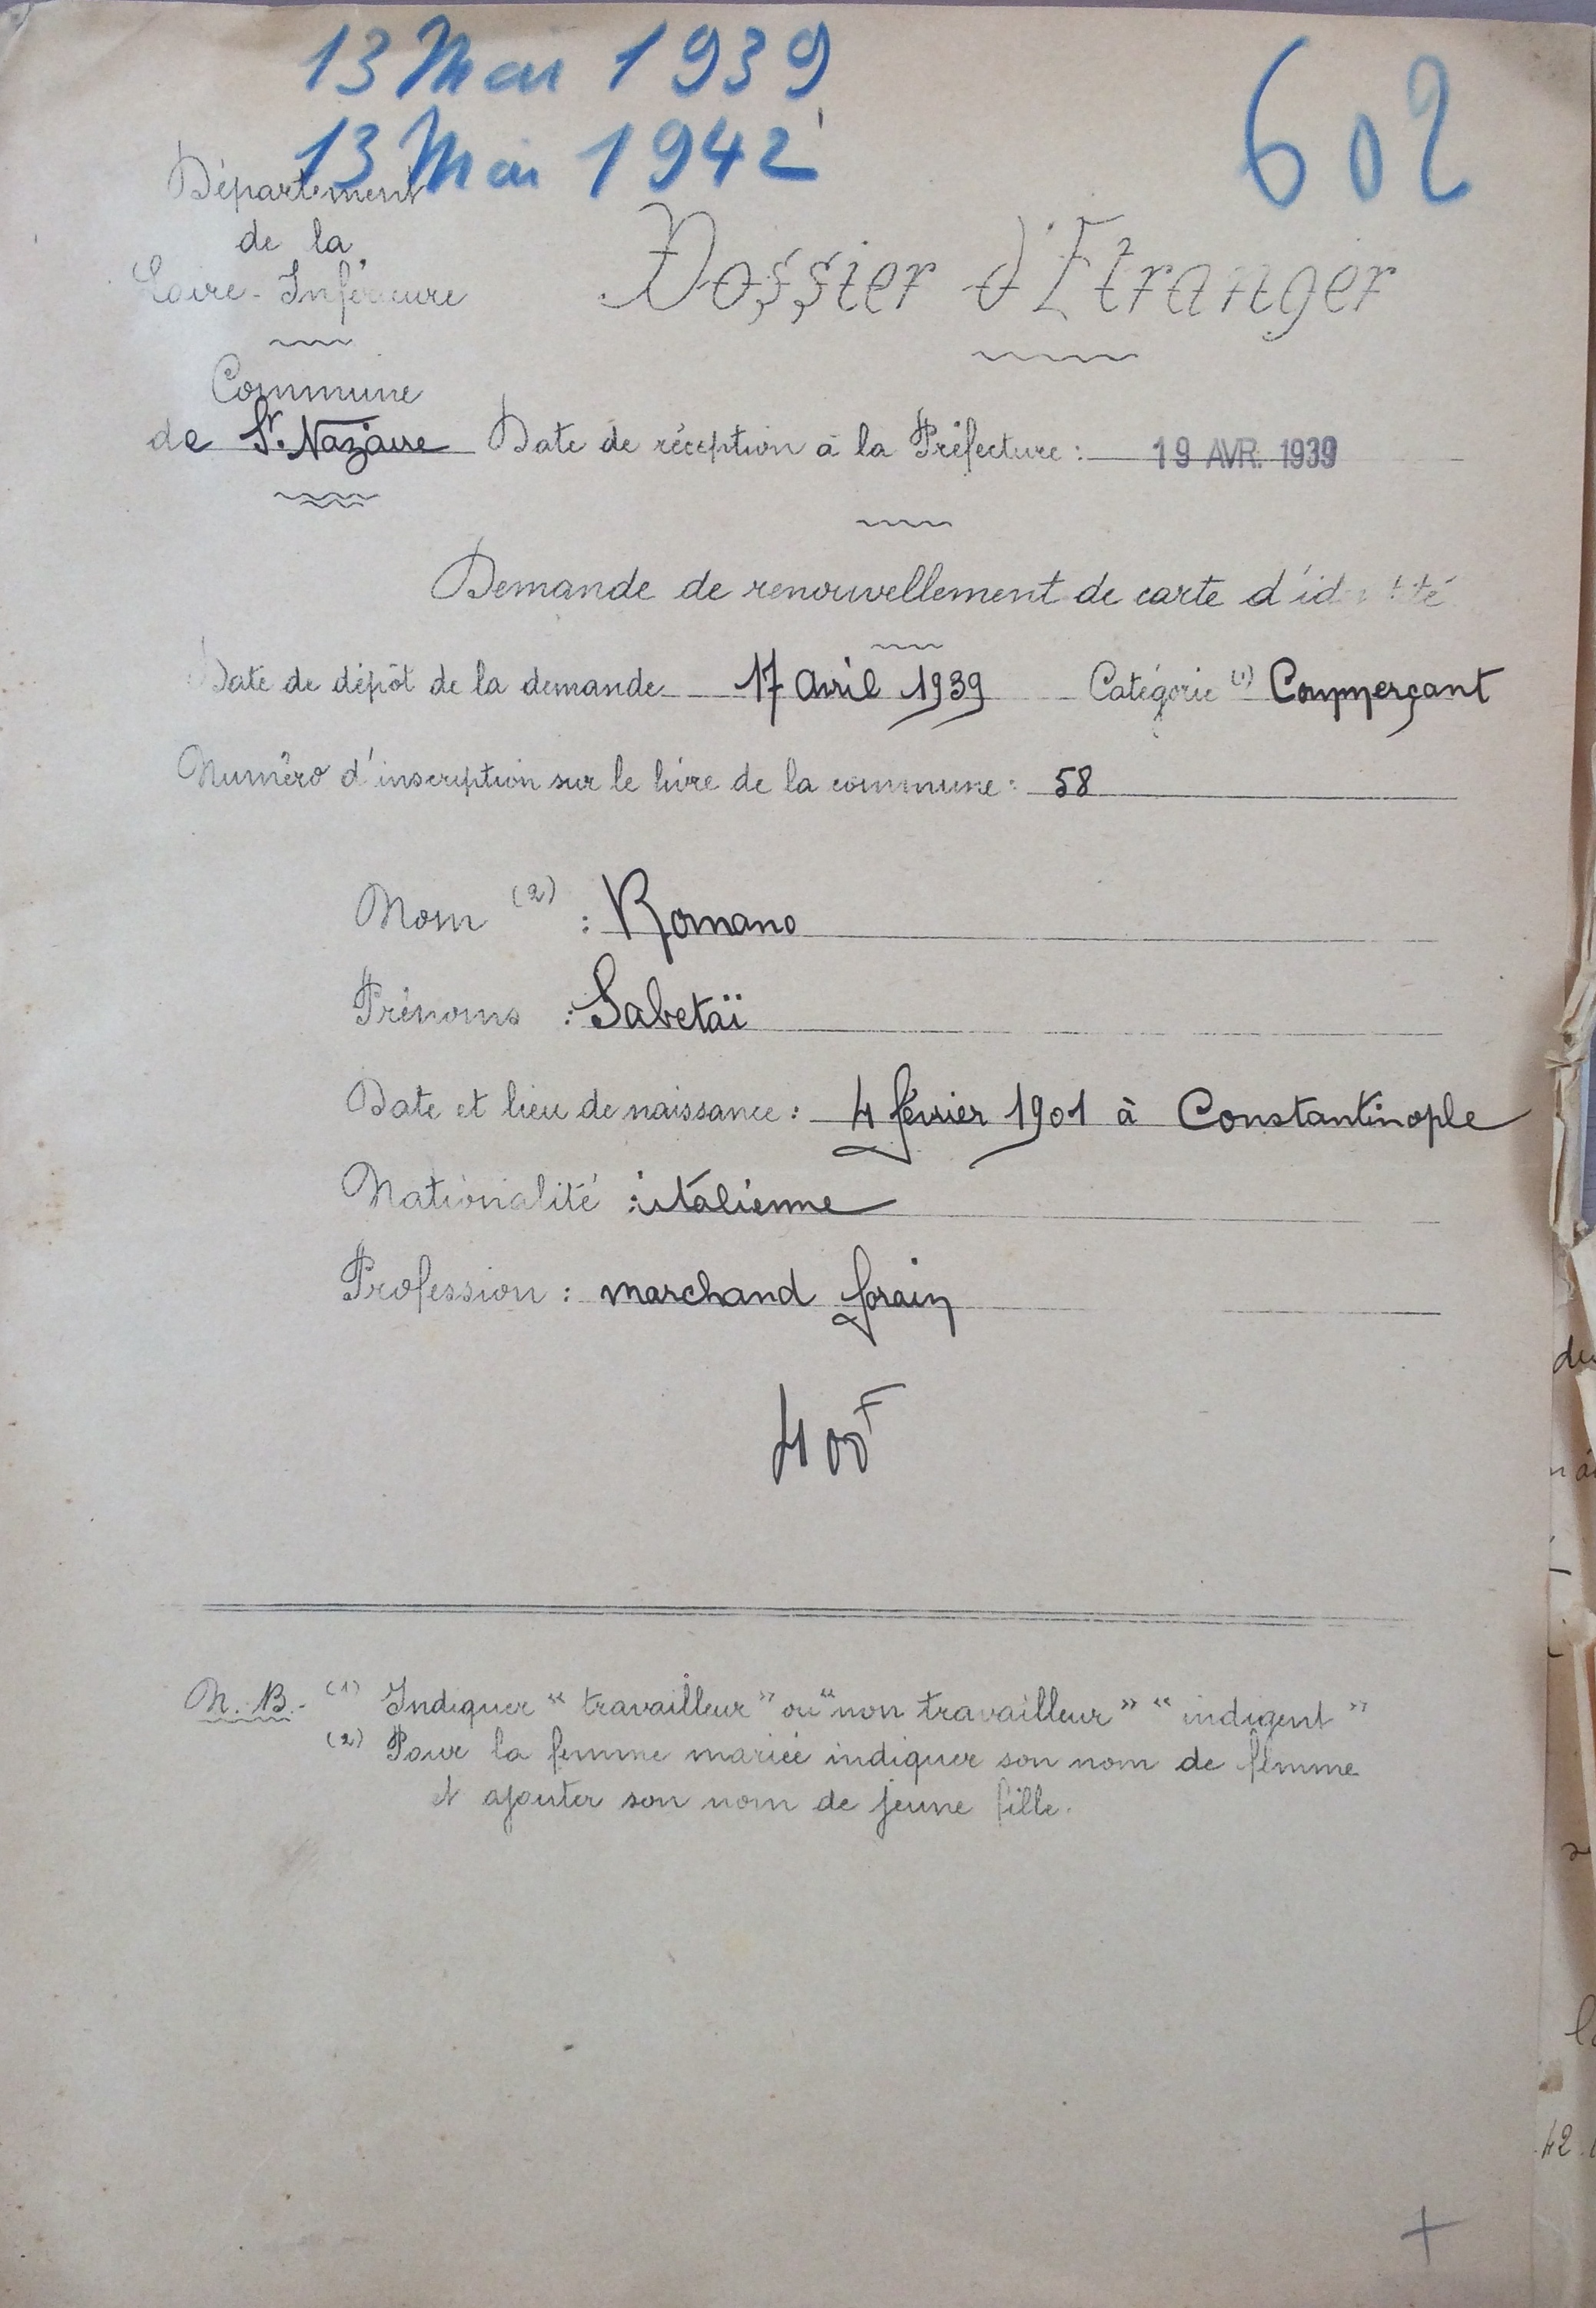 13 Mai 1939
13 Mai 1942
602
Département
de la
Loire-Inférieure
Dossier d'Etranger
Commune
de St. Nazaire
Date de réception à la Préfecture : 19 AVR. 1939
Demande de renouvellement de carte d'identité
Date de dépôt de la demande 17 avril 1939 Catégorie (1) Commerçant
Numéro d'inscription sur le livre de la commune : 58
Nom (2) : Romano
Prénoms : Sabetaï
Date et lieu de naissance : 4 février 1901 à Constantinople
Nationalité : italienne
Profession : marchand forain
400F
N.B.- (1) Indiquer "travailleur" ou "non travailleur" "indigent"
(2) Pour la femme mariée indiquer son nom de femme
et ajouter son nom de jeune fille.
du
42